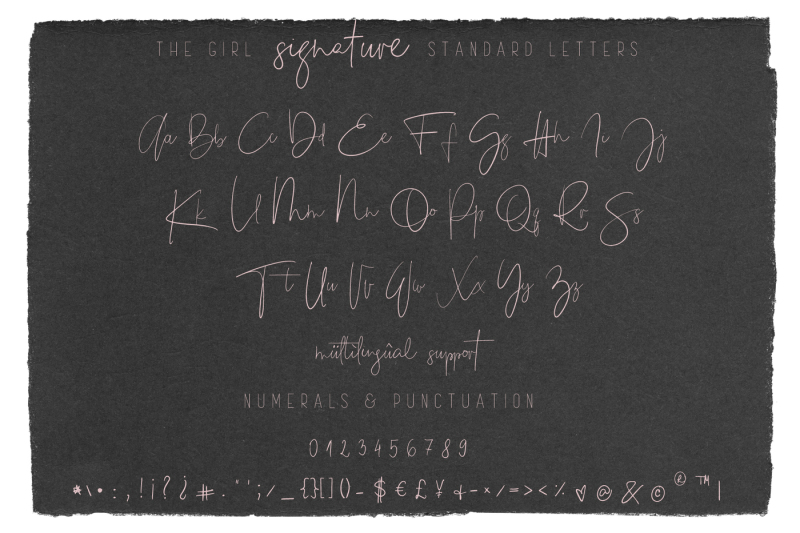 THE GIRL signature STANDARD LETTERS
Aa Bb Cc Dd Ee Ff Gg Hh Ii Jj
Kk Ll Mm Nn Oo Pp Qq Rr Ss
Tt Uu Vv Ww Xx Yy Zz
mültilingûal support
NUMERALS & PUNCTUATION
0123456789
* \ • : , ! ¡ ? ¿ # . " ' ; / _ {} [] () - $ € £ ¥ + - × / = > < % ♡ @ & © ® ™ |